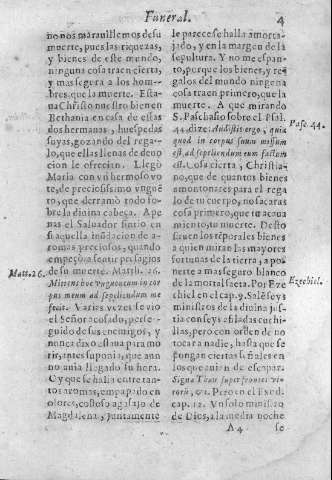 Funeral.
4
no nos marauillemos de su
muerte, pues las riquezas,
y bienes de este mundo,
ninguna cosa traen cierta,
y mas segera a los hom-
bres, que la muerte. Esta-
ua Christo nuestro bien en
Bethania en casa de estas
dos hermanas, huespedas
suyas, gozando del rega-
lo, que ellas llenas de deuo
cion le ofrecian. Llegò
Maria con vn hermoso vo
te, de preciosissimo vngue
to, que derramò todo so-
bre la diuina cabeça. Ape
nas el Saluador sintio en
si aquella inũdacion de a-
romas preciosos, quando
empeçò a sentir pressagios
de su muerte. Matth. 26.
Mittens hoc vnguentum in cor
pus meum ad sepeliendum me
fecit. Varias vezes se vio
el Señor acosado, perse-
guido de sus enemigos, y
nunca dixo estaua para mo
rir, antes suponia, que aun
no auia llegado su hora.
Oy que se halla entre tan-
tos aromas, empapado en
olores, costoso agasajo de
Magdalena, y juntamente
Matt. 26.
le parece se halla amorta-
jado, y en la margen de la
sepultura. Y no me espan-
to, porque los bienes, y re-
galos del mundo ninguna
cosa traen primero, que la
muerte. A que mirando
S. Paschasio sobre el Psal.
44. dize: Audistis ergo, quia
quod in corpus suum missum
est, ad sepeliendum eum factum
est. Cosa cierta, Christia-
no, que de quantos bienes
amontonares para el rega
lo de tu cuerpo, no sacaras
cosa primero, que tu acata
miento, tu muerte. Desto
siruen los tẽporales bienes
a quien miran las mayores
fortunas de la tierra, a po-
nerte a mas seguro blanco
de la mortal saeta. Por Eze
chiel en el cap. 9. Salẽ seys
ministros de la diuina jus-
ticia con seys afiladas cuchi-
llas, pero con orden de no
tocar a nadie, hasta que se
pongan ciertas señales en
los que auian de escapar.
Signa Thau super frontes vi-
rorum, &c. Pero en el Exod.
cap. 12. Vn solo ministro
de Dios, a la media noche
Pasc. 44.
Ezechiel.
A 4
se